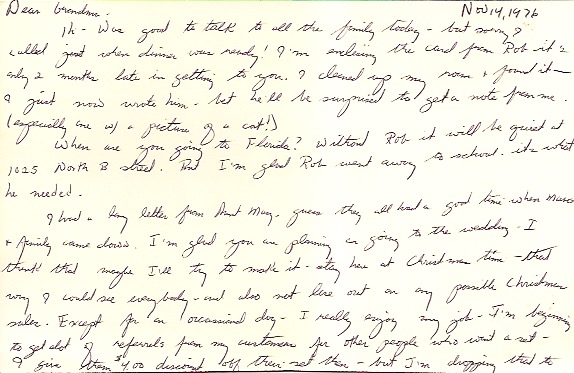 Nov 14, 1976
Dear Grandma,
Hi - Was good to talk to all the family today - but sorry I
called just when dinner was ready! I'm enclosing the card from Rob it's
only 2 months late in getting to you. I cleaned up my room & found it -
I just now wrote him - bet he'll be surprised to get a note from me.
(especially one w/ a picture of a cat!)
When are you going to Florida? Without Rob it will be quiet at
1025 North B street. But I'm glad Rob went away to school. its what
he needed.
I had a long letter from Aunt Mary - guess they all had a good time when
& family came down. I'm glad you are planning on going to the wedding - I
think that maybe I'll try to make it - stay here at Christmas time - that
way I could see everybody - and also not lose out on any possible Christmas
sales. Except for an occassional day - I really enjoy my job - I'm beginning
to get alot of referrals from my customers for other people who want a set -
I give them $4.00 discount off their set then - but I'm dropping that to